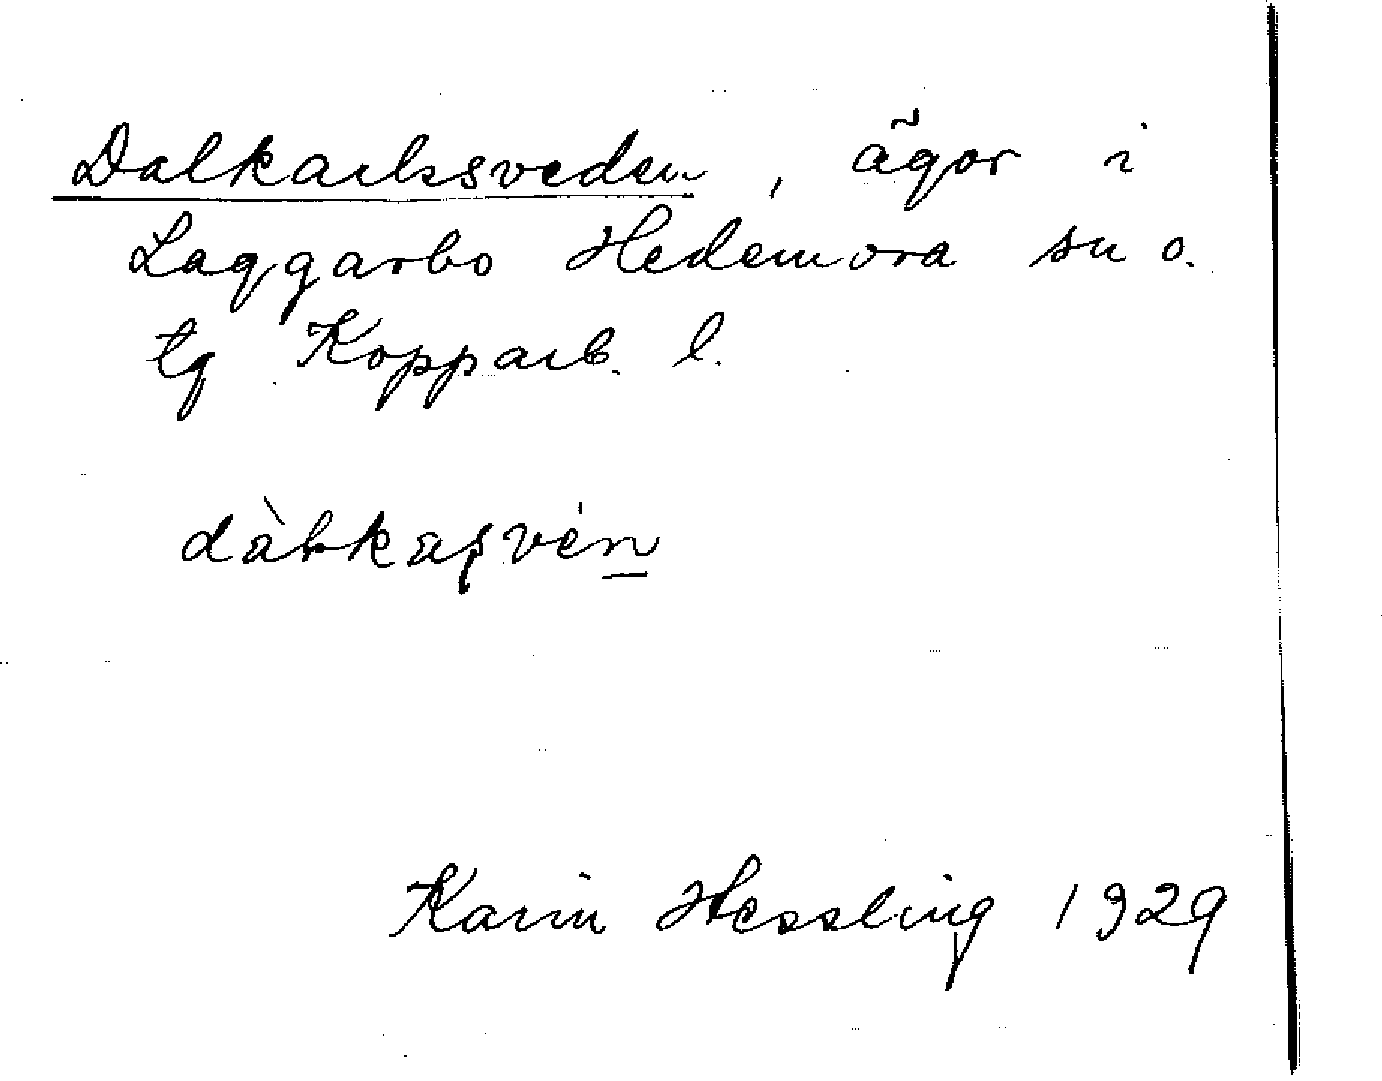 Dalkarlsveden, ägor i
Laggarbo Hedemora sn o.
tg Kopparb. l.
dàlkaʂvén
Karin Hessling 1929